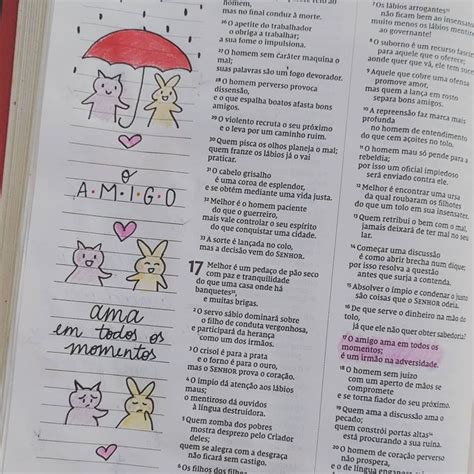 o
A·M·I·G·O
ama
em todos os
momentos
homem,
mas no final conduz à morte.
26 O apetite do trabalhador
o obriga a trabalhar;
a sua fome o impulsiona.
27 O homem sem caráter maquina o
mal;
suas palavras são um fogo devorador.
28 O homem perverso provoca
dissensão,
e o que espalha boatos afasta bons
amigos.
29 O violento recruta o seu próximo
e o leva por um caminho ruim.
30 Quem pisca os olhos planeja o mal;
quem franze os lábios já o vai
praticar.
31 O cabelo grisalho
é uma coroa de esplendor,
e se obtém mediante uma vida justa.
32 Melhor é o homem paciente
do que o guerreiro,
mais vale controlar o seu espírito
do que conquistar uma cidade.
33 A sorte é lançada no colo,
mas a decisão vem do SENHOR.
17 Melhor é um pedaço de pão seco
com paz e tranquilidade
do que uma casa onde há
banquetes,
e muitas brigas.
2 O servo sábio dominará sobre
o filho de conduta vergonhosa,
e participará da herança
como um dos irmãos.
3 O crisol é para a prata
e o forno é para o ouro,
mas o SENHOR prova o coração.
4 O ímpio dá atenção aos lábios
maus;
o mentiroso dá ouvidos
à língua destruidora.
5 Quem zomba dos pobres
mostra desprezo pelo Criador
deles;
quem se alegra com a desgraça
não ficará sem castigo.
6 Os filhos dos filhos
7 Os lábios arrogantes
não ficam bem ao insensato
muito menos os lábios
ao governante!
8 O suborno é um recurso
para aquele que o oferece;
aonde quer que vá, ele tem
9 Aquele que cobre uma ofensa
promove amor,
mas quem a lança em rosto
separa bons amigos.
10 A repreensão faz marca mais
profunda
no homem de entendimento
do que cem açoites no tolo.
11 O homem mau só pende para a
rebeldia;
por isso um oficial impiedoso
será enviado contra ele.
12 Melhor é encontrar uma ursa
da qual roubaram os filhotes
do que um tolo em sua insensatez.
13 Quem retribui o bem com o mal,
jamais deixará de ter mal no seu
lar.
14 Começar uma discussão
é como abrir brecha num dique;
por isso resolva a questão
antes que surja a contenda.
15 Absolver o ímpio e condenar o justo
são coisas que o SENHOR odeia.
16 De que serve o dinheiro na mão do
tolo,
já que ele não quer obter sabedoria?
17 O amigo ama em todos os
momentos;
é um irmão na adversidade.
18 O homem sem juízo
com um aperto de mãos se
compromete
e se torna fiador do seu próximo.
19 Quem ama a discussão ama o
pecado;
quem constrói portas altas
está procurando a sua ruína.
20 O homem de coração perverso
não prospera,
e o de língua enganosa